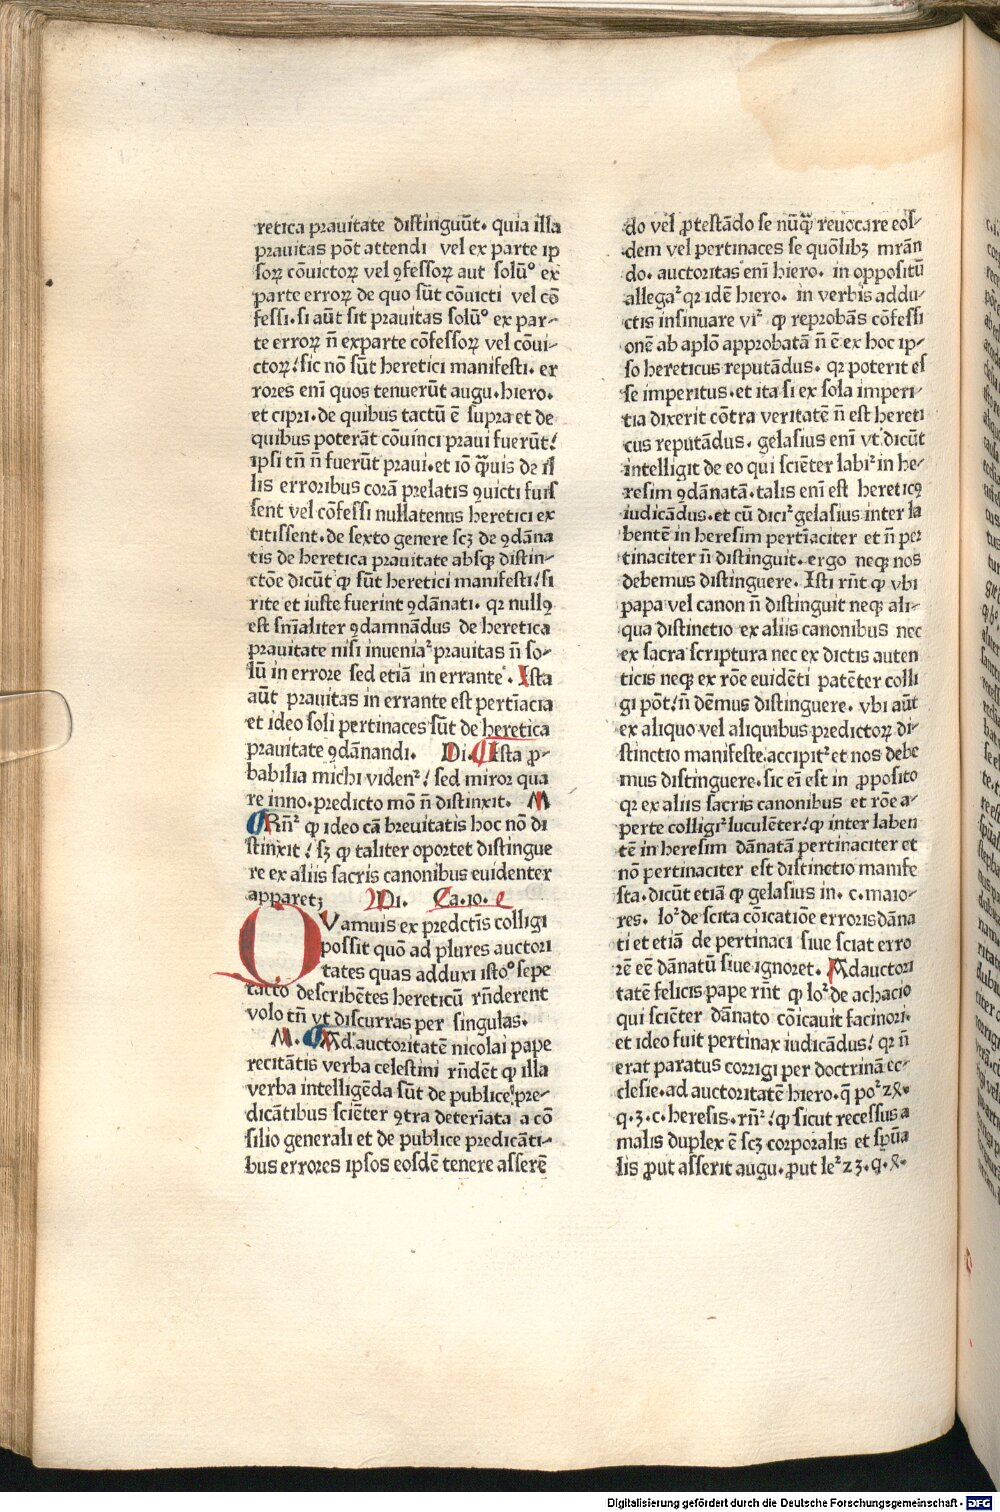 retica prauitate distinguūt. quia illa
prauitas pōt attendi vel ex parte ip
soꝝ cōuictoꝝ vel ꝯfessoꝝ aut solūº ex
parte erroꝝ de quo sūt cōuicti vel cō
fessi. si aūt sit prauitas solūº ex par-
te erroꝝ n̄ exparte cōfessoꝝ vel cōui-
ctoꝝ! sic nō sūt heretici manifesti. er
rores enī quos tenuerūt augu. hiero.
et cipri. de quibus tactū ē supra et de
quibus poterāt cōuinci praui fuerūt!
ipsi tn̄ n̄ fuerūt praui. et iō ꝙ̄uis de il
lis erroribus corā prelatis ꝯuicti fuis
sent vel cōfessi nullatenus heretici ex
titissent. de sexto genere scꝫ de ꝯdāna
tis de heretica prauitate absqꝫ distin-
ctōe dicūt ꝙ sūt heretici manifesti! si
rite et iuste fuerint ꝯdānati. qꝛ nullꝰ
est sn̄ialiter ꝯdamnādus de heretica
prauitate nisi inueniaᷣ prauitas n̄ so-
lū in errore sed etiā in errante. Ista
aūt prauitas in errante est pertiācia
et ideo soli pertinaces sūt de heretica
prauitate ꝯdānandi. Di. Ista ꝓ-
babilia michi videnᷣ! sed miror qua
re inno. predicto mō n̄ distinxit. M
Rn̄ᷣ ꝙ ideo cā breuitatis hoc nō di
stinxit! sꝫ ꝙ taliter oportet distingue
re ex aliis sacris canonibus euidenter
apparet; Di. Ca. io. e
QVamuis ex predctīs colligi
possit quō ad plures auctori
tates quas adduxi istoº sepe
tacto describētes hereticū rn̄derent
volo tn̄ vt discurras per singulas.
M. Ad auctoritatē nicolai pape
recitātis verba celestini rn̄dēt ꝙ illa
verba intelligēda sūt de publice pre-
dicātibus sciēter ꝯtra deteriata a cō
silio generali et de publice predicāti-
bus errores ipsos eosdē tenere asserē
do vel ꝓtestādo se nūꝙ̄ reuocare eos-
dem vel pertinaces se quōlibꝫ mrān
do. auctoritas enī hiero. in oppositū
allegaᷣ qꝛ idē hiero. in verbis addu-
ctis insinuare viᷣ ꝙ reprobās cōfessi
onē ab aplō approbatā n̄ ē ex hoc ip-
so hereticus reputādus. qꝛ poterit es
se imperitus. et ita si ex sola imperi-
tia dixerit cōtra veritatē n̄ est hereti
cus reputādus. gelasius enī vt dicūt
intelligit de eo qui sciēter labiᷣ in he-
resim ꝯdānatā. talis enī est hereticꝰ
iudicādus. et cū diciᷣ gelasius inter la
bentē in heresim pertīaciter et n̄ per
tinaciter n̄ distinguit. ergo neqꝫ nos
debemus distinguere. Isti rn̄t ꝙ vbi
papa vel canon n̄ distinguit neqꝫ ali-
qua distinctio ex aliis canonibus nec
ex sacra scriptura nec ex dictis auten
ticis neqꝫ ex rōe euidēti patēter colli
gi pōt! n̄ dēmus distinguere. vbi aūt
ex aliquo vel aliquibus predictoꝝ di-
stinctio manifeste accipitᷣ et nos debe
mus distinguere. sic eī est in ꝓposito
qꝛ ex aliis sacris canonibus et rōe a-
perte colligiᷣ luculēter! ꝙ inter laben
tē in heresim dānatā pertinaciter et
nō pertinaciter est distinctio manife
sta. dicūt etiā ꝙ gelasius in. c. maio-
res. loᷣ de scita cōicatiōe erroris dāna
ti et etiā de pertinaci siue sciat erro
rē eē dānatū siue ignoret. Ad auctori
tatē felicis pape rn̄t ꝙ loᷣ de achacio
qui sciēter dānato cōicauit facinori.
et ideo fuit pertinax iudicādus! qꝛ n̄
erat paratus corrigi per doctrinā ec-
clesie. ad auctoritatē hiero. q̄ poᷣ 24.
q. 3. c. heresis. rn̄ᷣ! ꝙ sicut recessus a
malis duplex ē scꝫ corporalis et spūa
lis ꝓut asserit augu. ꝓut leᷣ 23. q. 4.
Digitalisierung gefördert durch die Deutsche Forschungsgemeinschaft - DFG